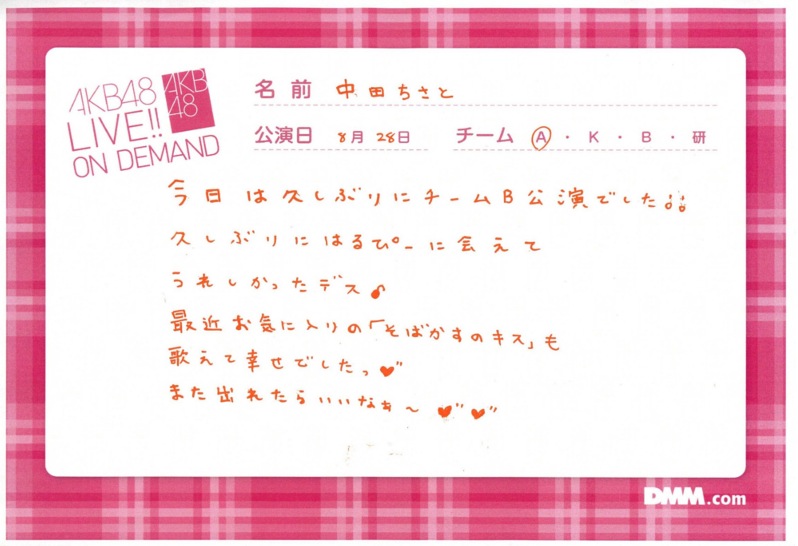 AKB48
LIVE!!
ON DEMAND
AKB
48
名前 中田ちさと
公演日 8月28日 チーム A・K・B・研
今日は久しぶりにチームB公演でした!!
久しぶりにはるぴーに会えて
うれしかったデス♪
最近お気に入りの「そばかすのキス」も
歌えて幸せでしたっ♥"
また出れたらいいなぁ〜 ♥"♥"
DMM.com